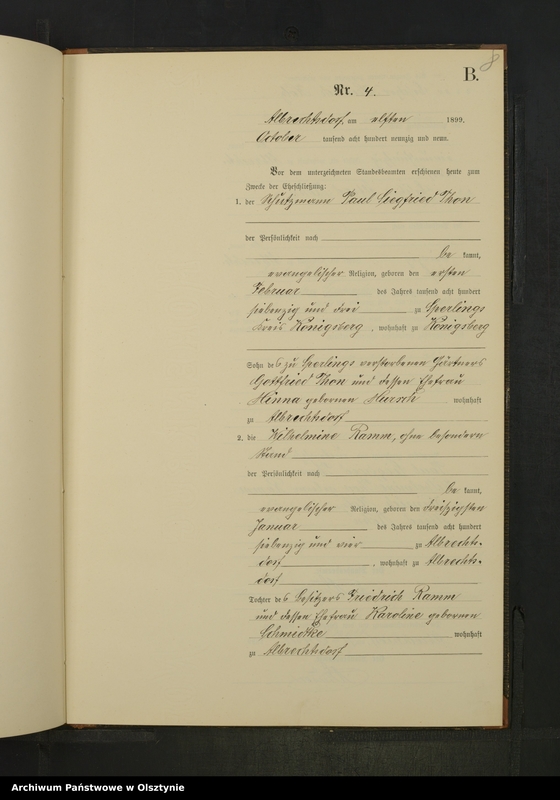 B.
8
Nr. 4.
Albrechtsdorf, am elften 1899,
October tausend acht hundert neunzig und neun.
Vor dem unterzeichneten Standesbeamten erschienen heute zum
Zwecke der Eheschließung:
1. der Schutzmann Paul Siegfried Thon
der Persönlichkeit nach
be kannt,
evangelischer Religion, geboren den ersten
Februar des Jahres tausend acht hundert
siebenzig und drei zu Sperlings
Kreis Königsberg, wohnhaft zu Königsberg
Sohn des zu Sperlings verstorbenen Gärtners
Gottfried Thon und dessen Ehefrau
Minna gebornen wohnhaft
zu Albrechtsdorf
2. die Wilhelmine Ramm, ohne besondern
Stand
der Persönlichkeit nach
be kannt,
evangelischer Religion, geboren den dreißigsten
Januar des Jahres tausend acht hundert
siebenzig und vier zu Albrechts-
dorf, wohnhaft zu Albrechts-
dorf
Tochter des Besitzers Friedrich Ramm
und dessen Ehefrau Karoline gebornen
Schmidtke wohnhaft
zu Albrechtsdorf
Archiwum Państwowe w Olsztynie